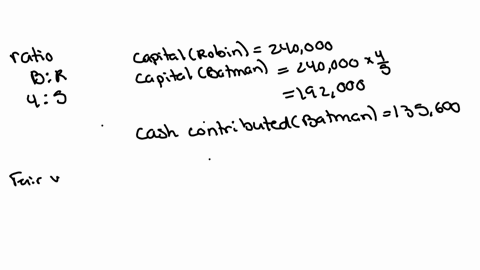 ratio
B:R
4:5
capital(Robin) = 240,000
capital(Batman) = 240,000 × 4/5
= 192,000
cash contributed(Batman) = 135,600
Fair v